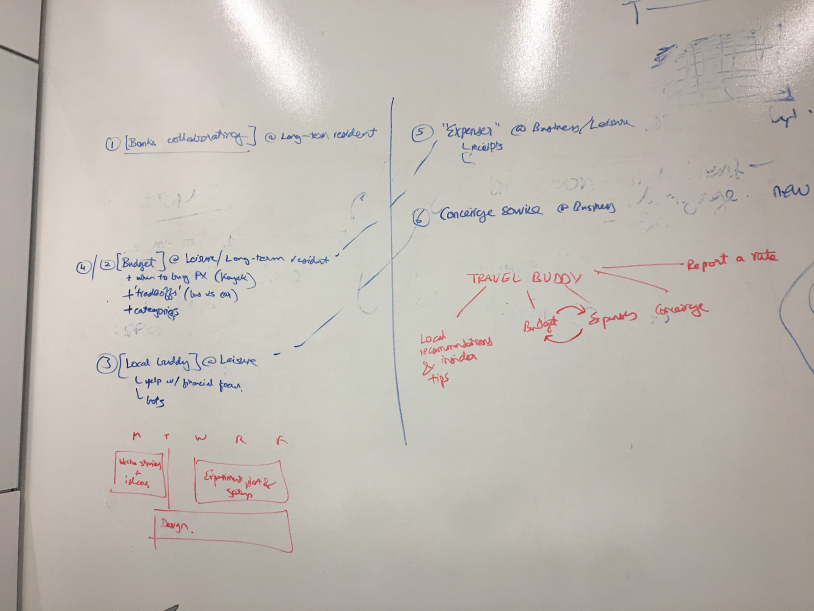 ① [Banks collaborating] @ Long-term resident
④/② [Budget] @ Leisure/Long-term resident
+ when to buy FX (Kayak)
+ 'tradeoffs' (bus vs car)
+ categories
③ [Local buddy] @ Leisure
yelp w/ financial focus
bots
M T W R F
ideas
Experiment plan &
setup
Design.
⑤ "Expenses" @ Business/Leisure
receipts
⑥ Concierge service @ Business
NEW
TRAVEL BUDDY
Report a rate
Local
recommendations
& insider
tips
Budget
Expenses
Concierge